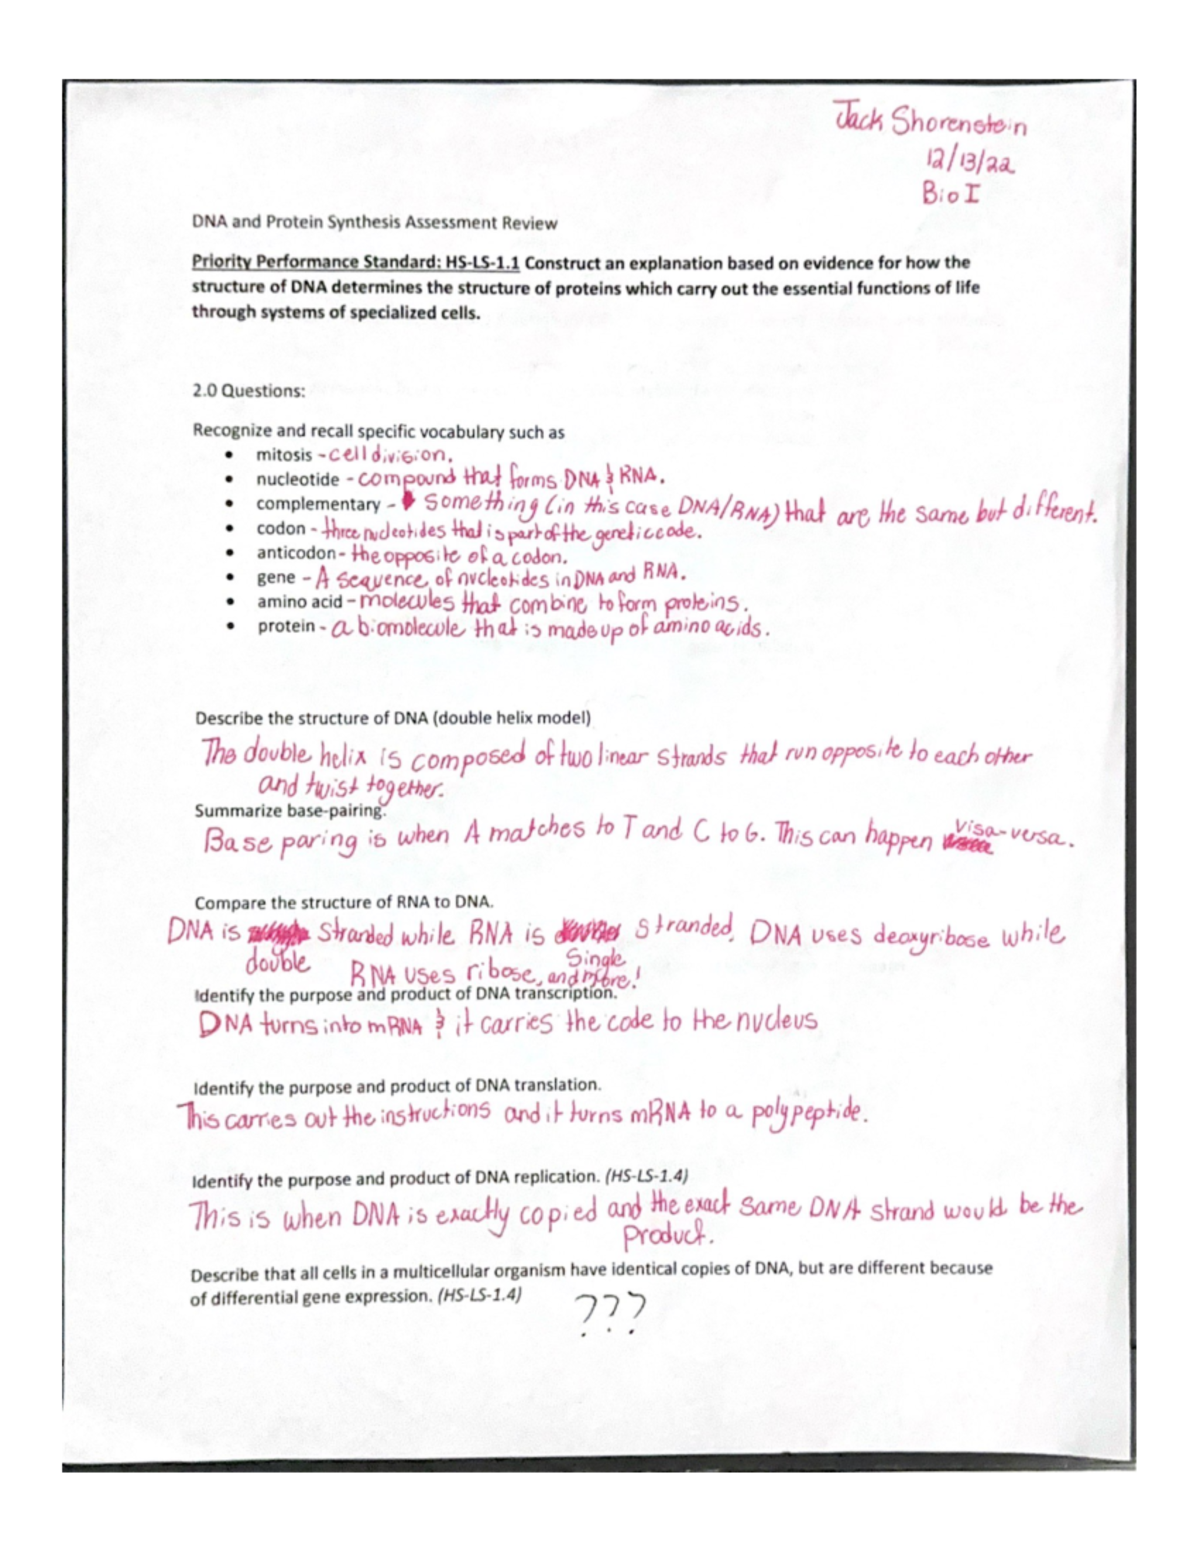 Jack Shorenstein
12/13/22
Bio I
DNA and Protein Synthesis Assessment Review
Priority Performance Standard: HS-LS-1.1 Construct an explanation based on evidence for how the
structure of DNA determines the structure of proteins which carry out the essential functions of life
through systems of specialized cells.
2.0 Questions:
Recognize and recall specific vocabulary such as
• mitosis - cell division.
• nucleotide - compound that forms DNA & RNA.
• complementary - something (in this case DNA/RNA) that are the same but different.
• codon - three nucleotides that is part of the genetic code.
• anticodon - the opposite of a codon.
• gene - A sequence of nucleotides in DNA and RNA.
• amino acid - molecules that combine to form proteins.
• protein - a biomolecule that is made up of amino acids.
Describe the structure of DNA (double helix model)
The double helix is composed of two linear strands that run opposite to each other
and twist together.
Summarize base-pairing.
Base paring is when A matches to T and C to G. This can happen visa-versa.
Compare the structure of RNA to DNA.
DNA is double stranded while RNA is single stranded. DNA uses deoxyribose while
RNA uses ribose, and more!
Identify the purpose and product of DNA transcription.
DNA turns into mRNA & it carries the code to the nucleus
Identify the purpose and product of DNA translation.
This carries out the instructions and it turns mRNA to a polypeptide.
Identify the purpose and product of DNA replication. (HS-LS-1.4)
This is when DNA is exactly copied and the exact same DNA strand would be the
product.
Describe that all cells in a multicellular organism have identical copies of DNA, but are different because
of differential gene expression. (HS-LS-1.4)
???